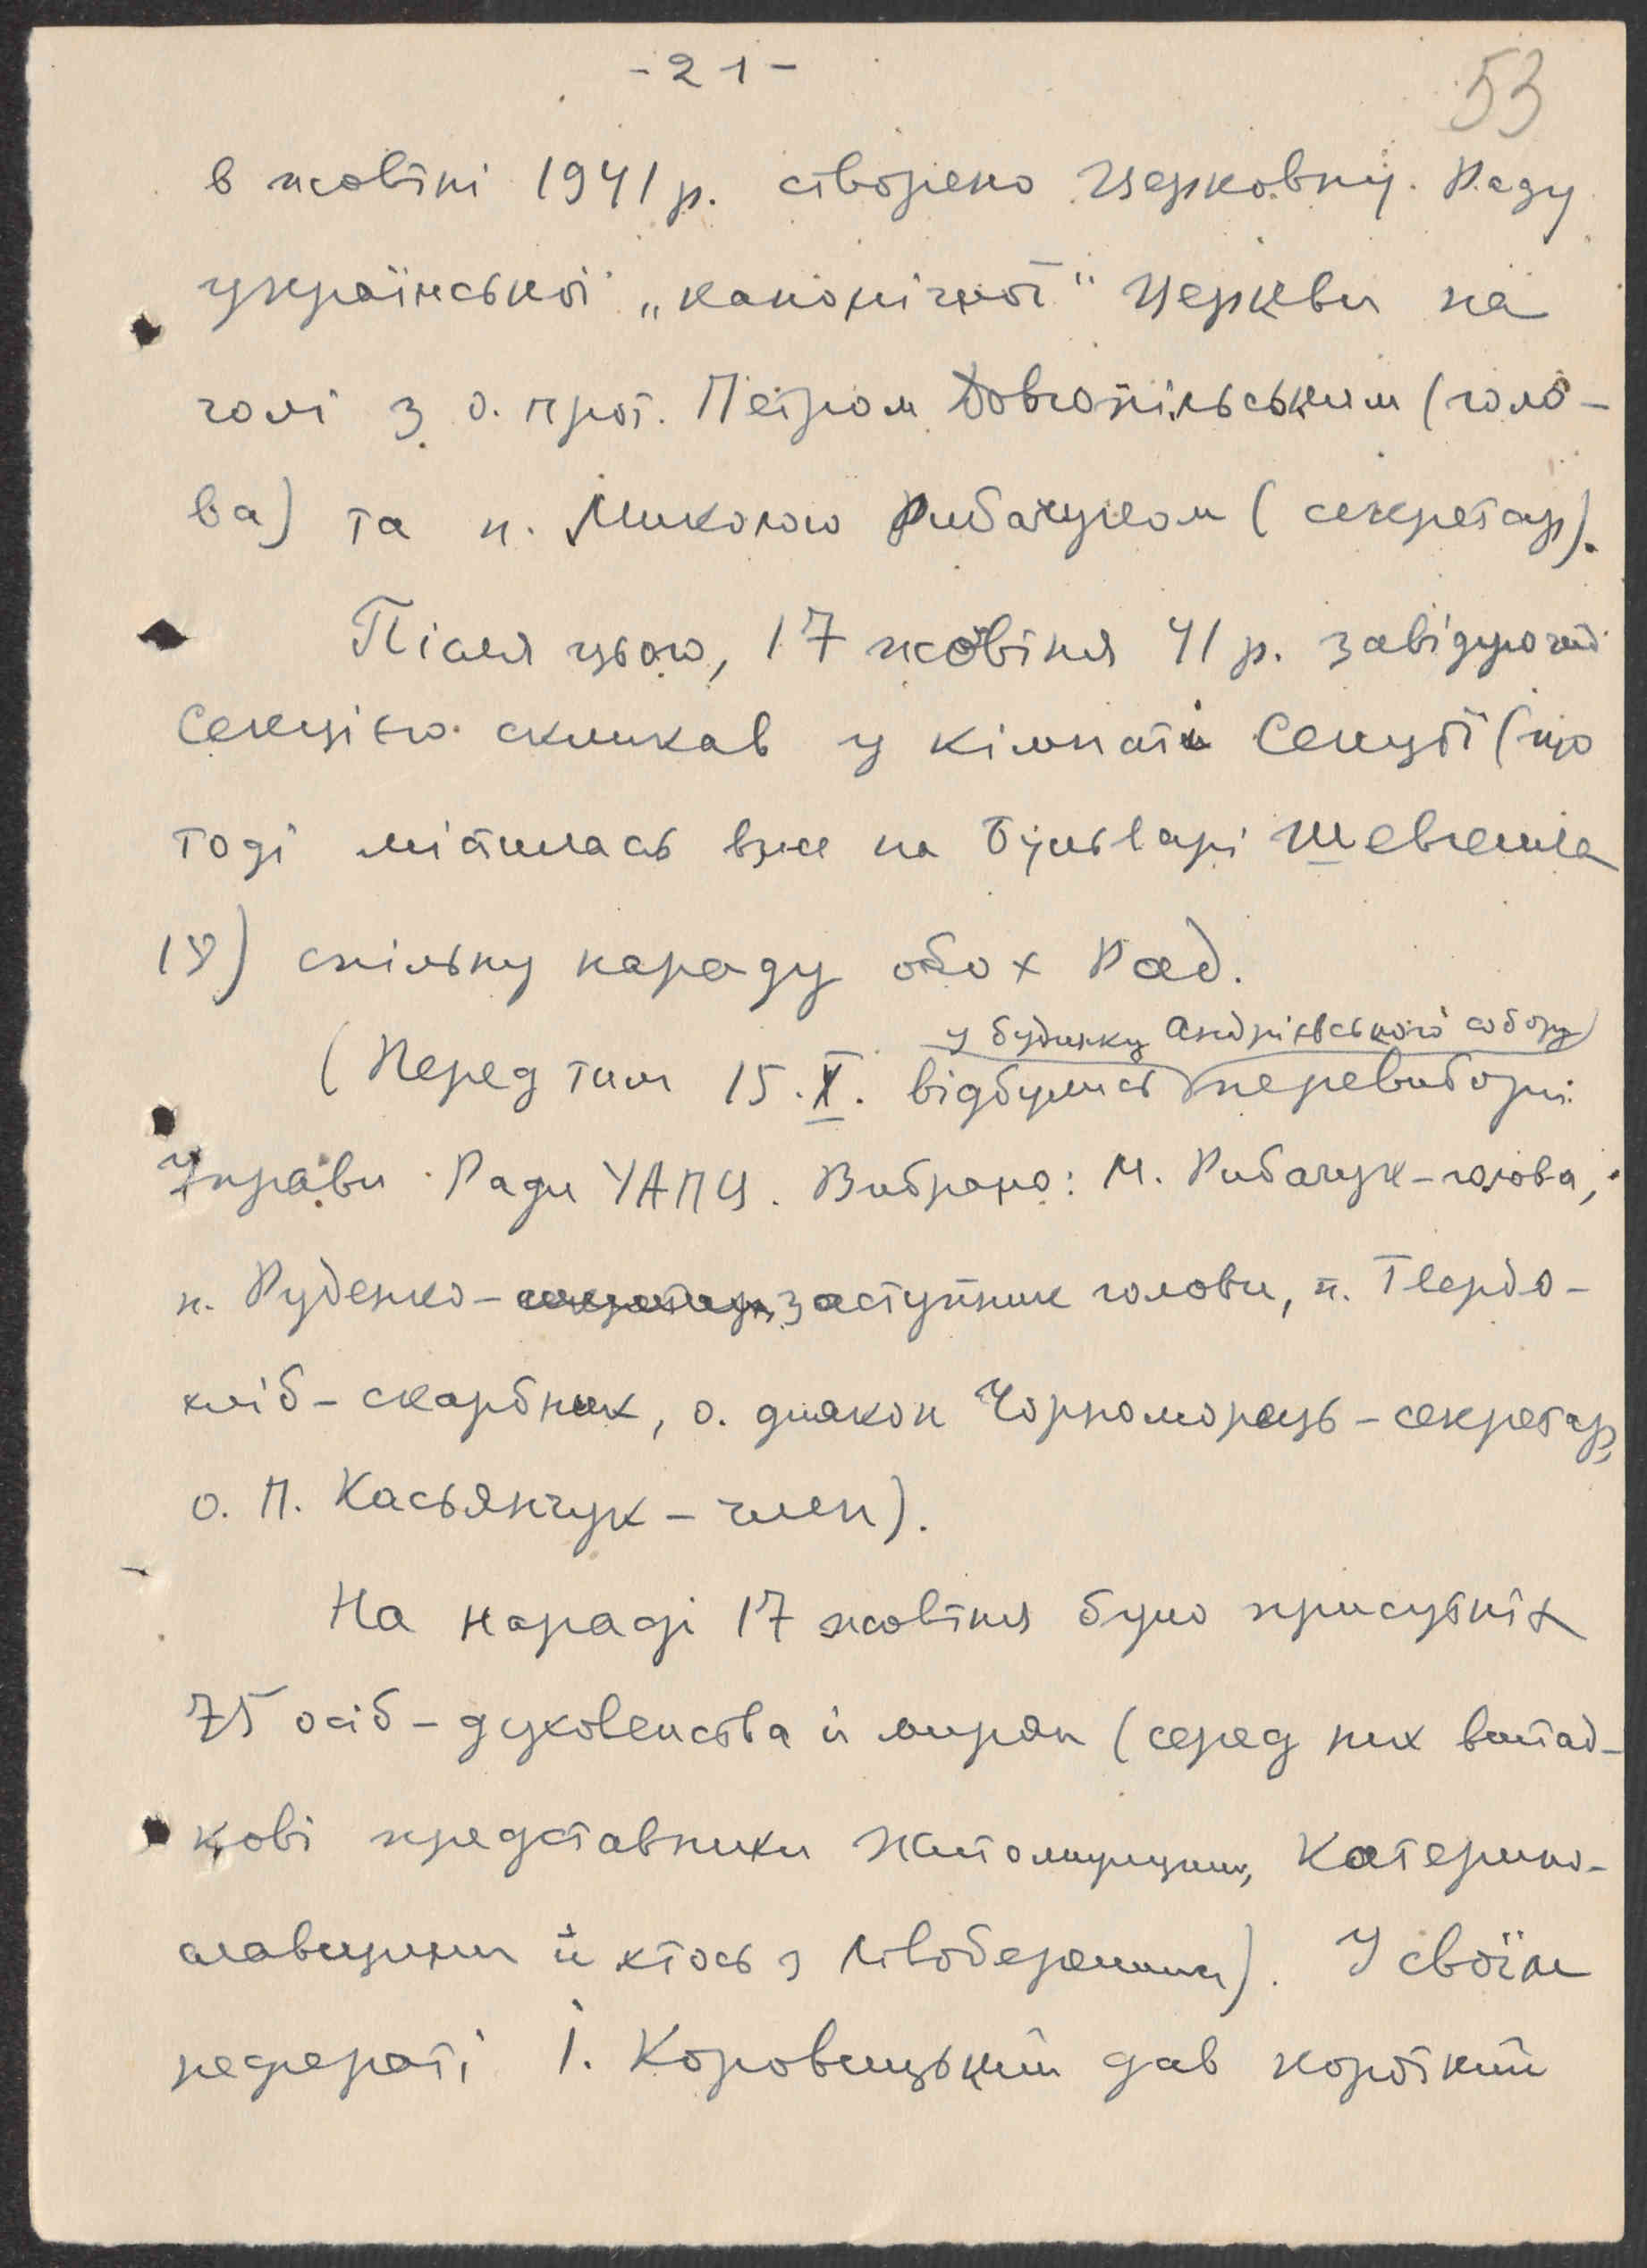 - 21 -
53
в жовтні 1941 р. створено Церковну Раду
української „канонічної" Церкви на
чолі з о. прот. Петром Довгопільським (голо-
ва) та п. Миколою Рибачуком (секретар).
Після цього, 17 жовтня 41 р. завідуючий
Секцією скликав у кімнаті Секції (що
тоді містилась вже на Бульварі Шевченка
) спільну нараду обох Рад.
у будинку Андріївського собору
(Перед тим 15.X. відбулись перевибори
Управи Ради УАПЦ. Вибрано: М. Рибачук - голова,
п. Руденко - секретар, заступник голови, п. Твердо-
хліб - скарбник, о. диякон Чорноморець - секретар,
о. П. Касьянчук - член).
На нараді 17 жовтня було присутніх
75 осіб - духовенства й мирян (серед них випад-
кові представники Житомирщини, Катерино-
славщини й хтось з Лівобережжя). У своїм
рефераті І. Коровицький дав короткий